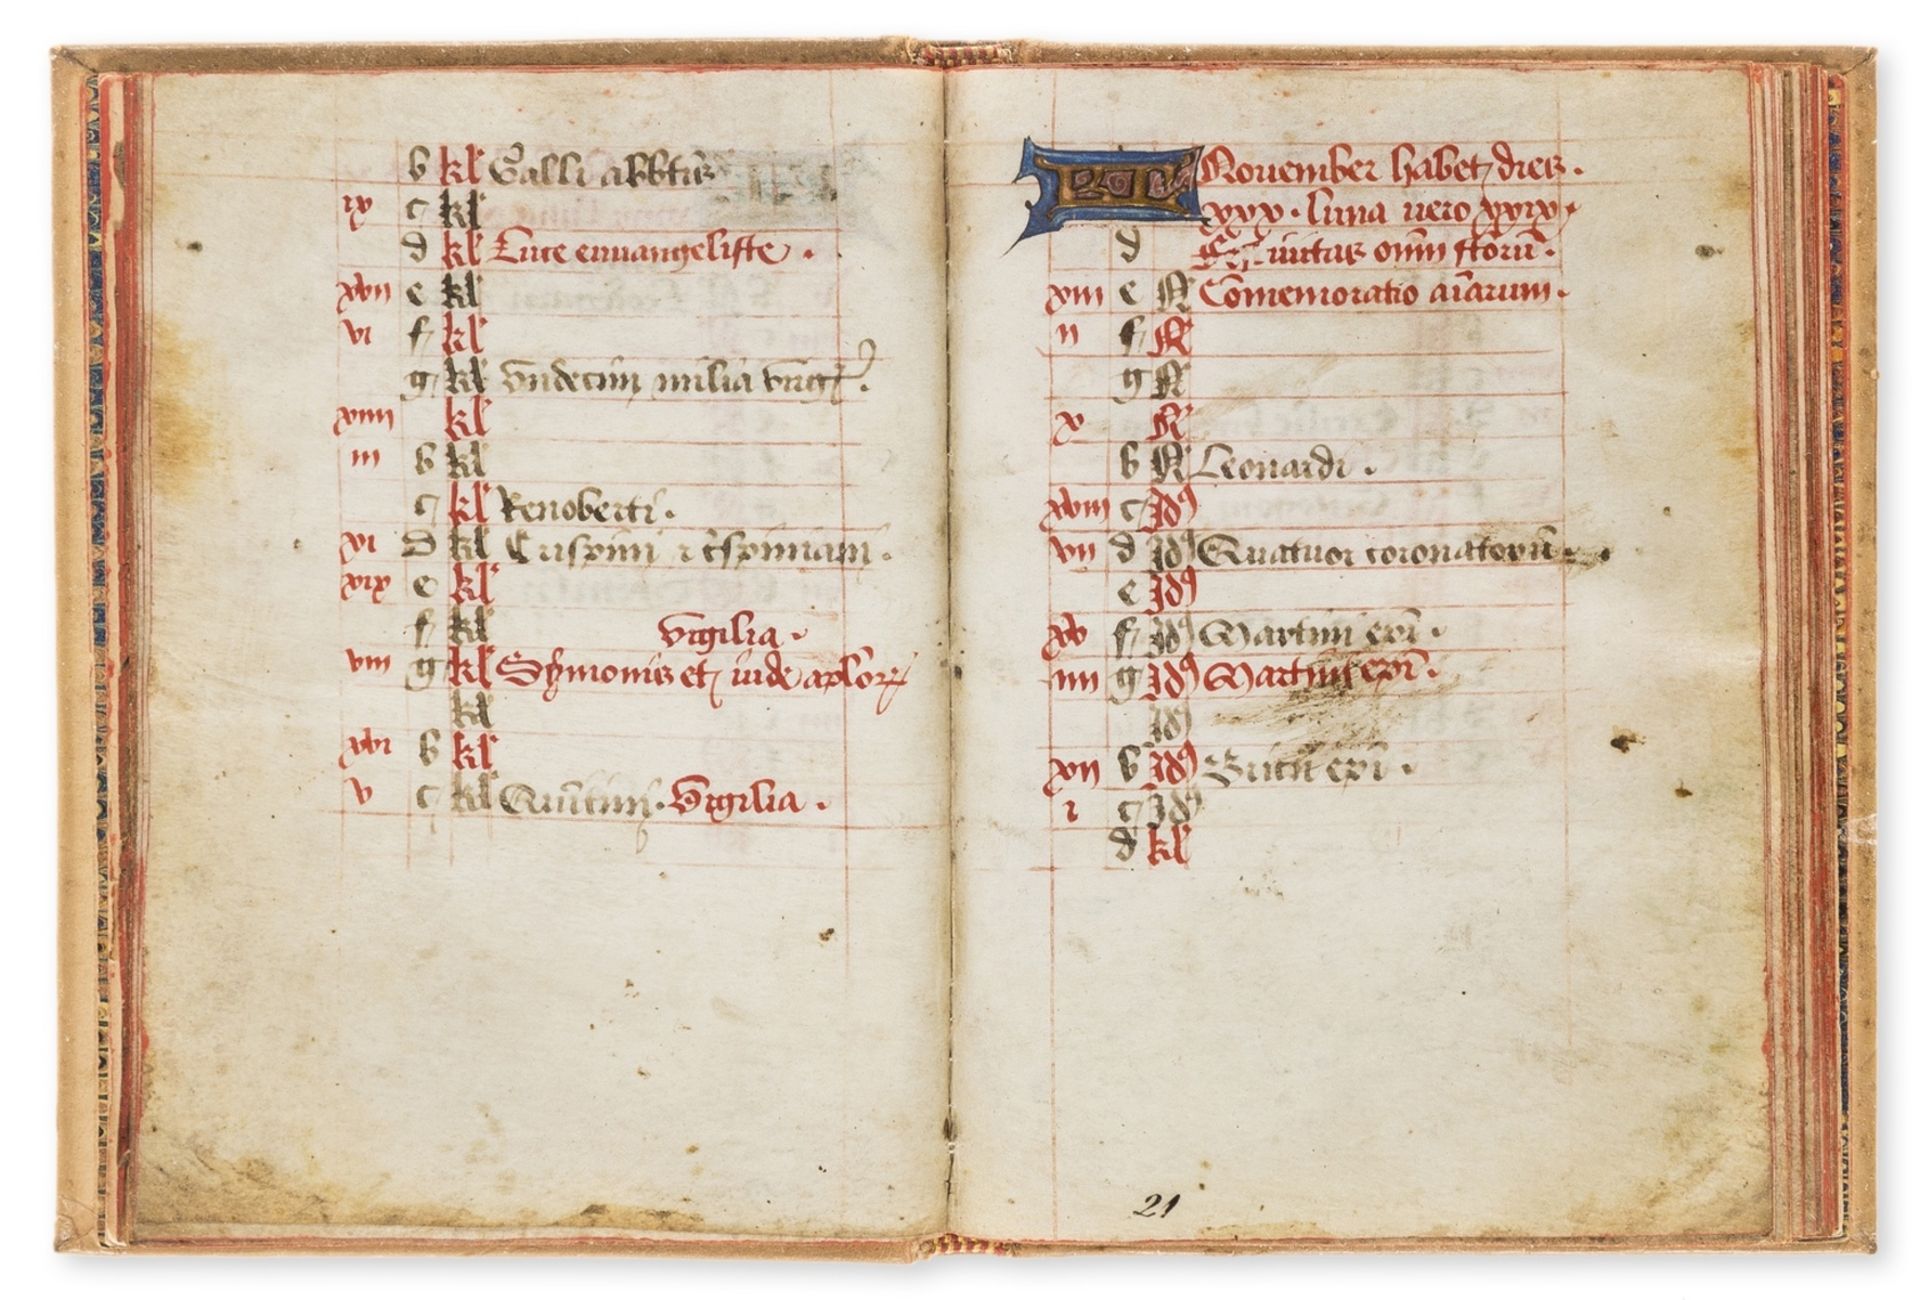 b kl Galli abbtis
ix c kl
d kl Luce euuangeliste .
xvii e kl
vi f kl
g kl Vndecim milia virg .
xiiii kl
iii b kl
c kl Renoberti .
xi D kl Crispini et cspiniani .
xix e kl
f kl Vigilia .
viii g kl Symonis et iude aplor
kl
xvi b kl
v c kl Quintini . Vigilia .
KL Nouember habet dies .
xxx . luna vero xxix .
d iuitas omnium storu .
xiii e N Comemoratio aiarum .
ii f N
g N
x N
b N Leonardi .
xviii c Id9
vii d Id9 Quatuor coronatoru .
e Id9
xv f Id9 Martini epi .
iiii g Id9 Martini epi .
Id9
xii b Id9 Bricii epi .
i c Id9
d kl
21